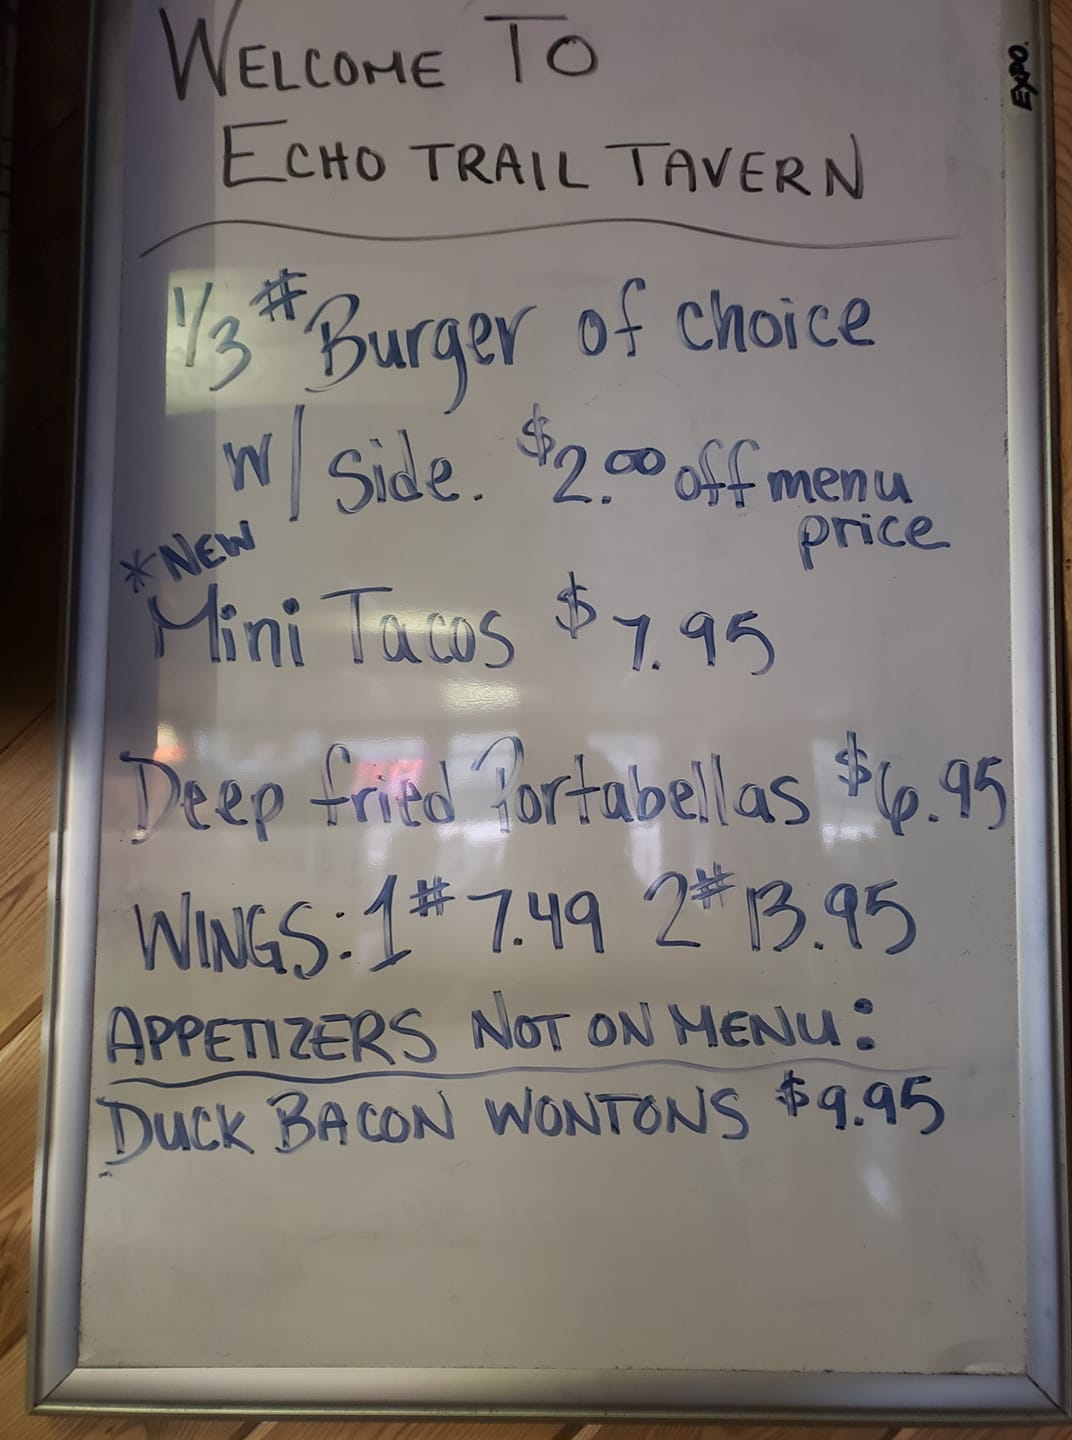 WELCOME TO
ECHO TRAIL TAVERN
EXPO.
1/3 # Burger of choice
w/ side. $2.00 off menu
price
*NEW
Mini Tacos $7.95
Deep fried Portabellas $6.95
WINGS: 1# 7.49 2# 13.95
APPETIZERS NOT ON MENU:
DUCK BACON WONTONS $9.95